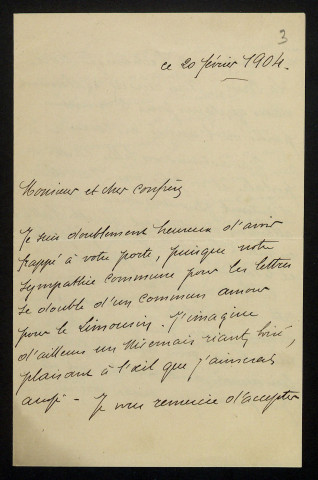 3
ce 20 février 1904.
Monsieur et cher confrère
Je suis doublement heureux d'avoir
frappé à votre porte, puisque notre
sympathie commune pour les lettres
se double d'un commun amour
pour le Limousin. J'imagine
d'ailleurs un riant, boisé,
plaisant à l'œil que j'aimerais
aussi - Je vous remercie d'accepter